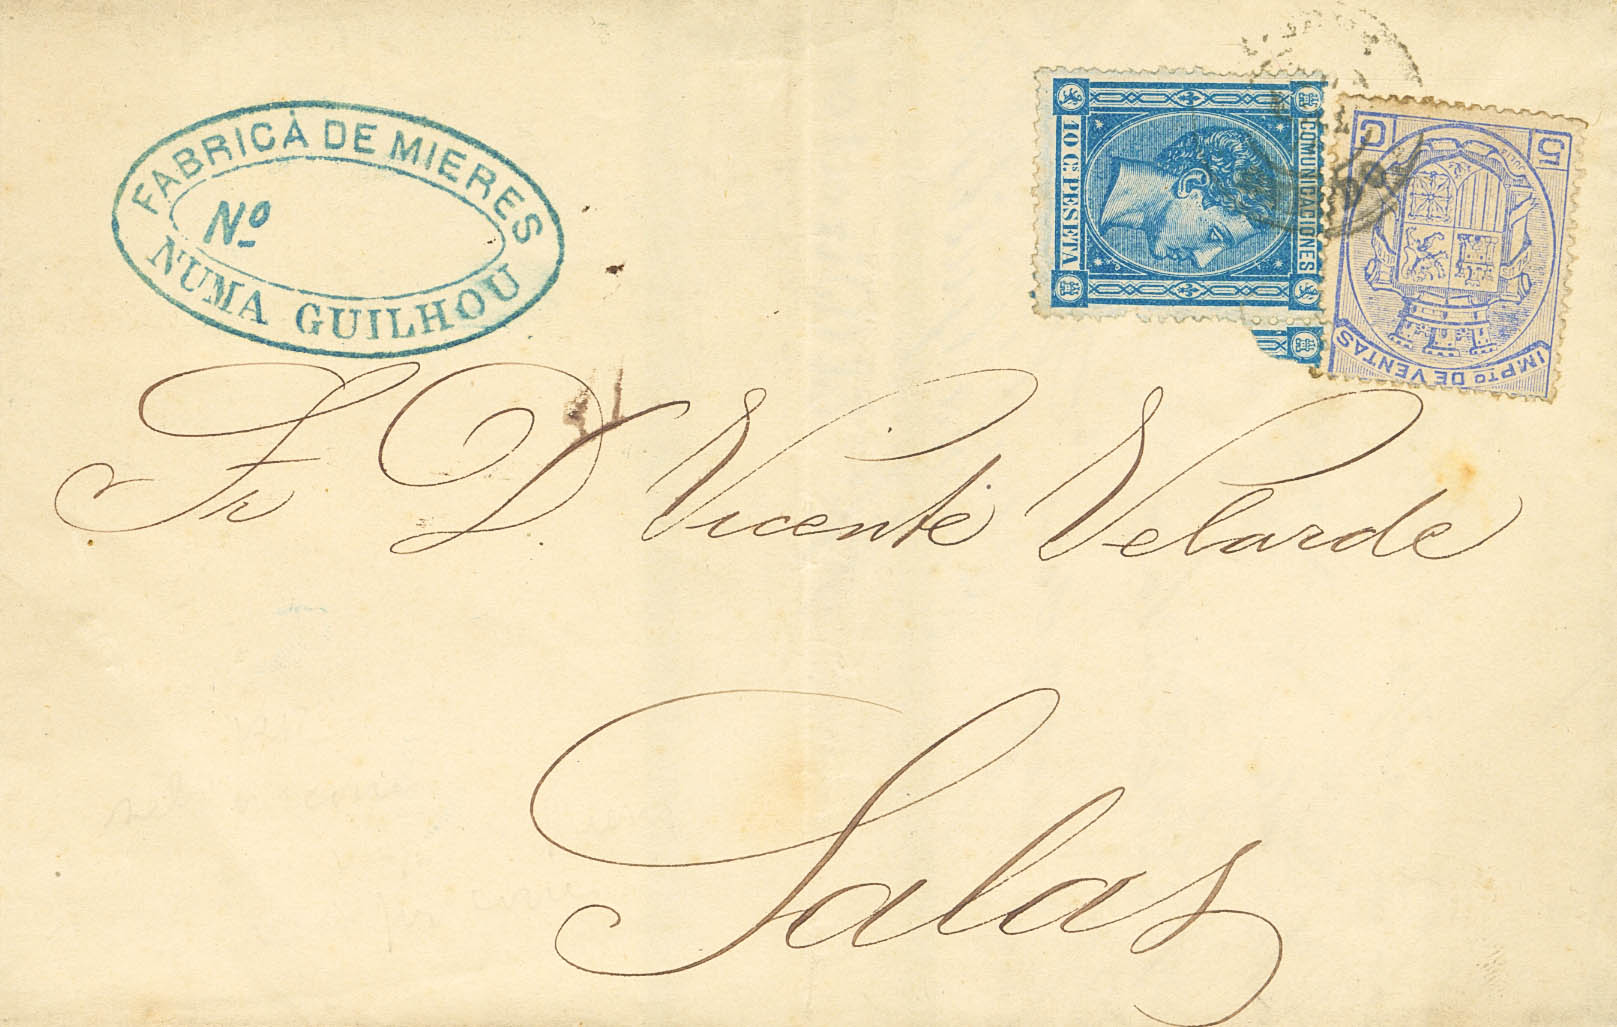 FABRICA DE MIERES
Nº
NUMA GUILHOU
COMUNICACIONES
10 Cs PESETA
5 C
IMPTO DE VENTAS
Sr D. Vicente Velarde
Salas